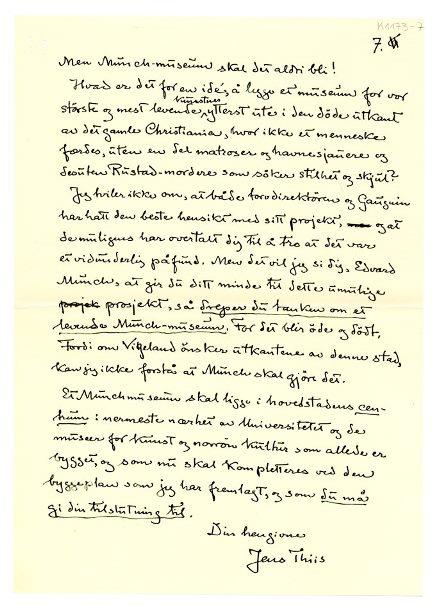 K1173-7
7.
Men Munch-museum skal det aldri bli!
Hvad er det for en idé, å legge et museum for vor
største og mest levende kunstner ytterst ute i den döde utkant
av det gamle Christiania, hvor ikke et menneske
færdes, uten en del matroser og havnesjauere og
desuten Rustad-mordere som söker stilhet og skjul?
Jeg tviler ikke om, at både torvdirektören og Gauguin
har hatt den beste hensikt med sitt projekt, og at
de muligens har overtalt dig til å tro at det var
et vidunderlig påfund. Men det vil jeg si dig, Edvard
Munch, at gir du ditt minde til dette umulige
projek prosjekt, så dreper du tanken om et
levende Munch-museum. For det blir öde og dödt.
Fordi om Vigeland önsker utkantene av denne stad,
kan jeg ikke forstå at Munch skal gjöre det.
Et Munchmuseum skal ligge i hovedstadens cen-
trum: nermeste nærhet av Universitetet og de
museer for kunst og norrön kultur som allede er
bygget, og som nu skal kompletteres ved den
byggeplan som jeg har fremlagt, og som du må
gi din tilslutning til.
Din hengivne
Jens Thiis